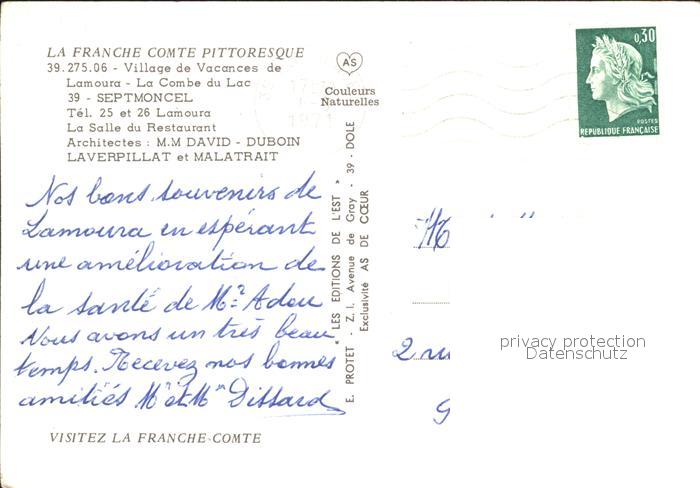 LA FRANCHE COMTE PITTORESQUE
39.275.06 - Village de Vacances de
Lamoura - La Combe du Lac
39 - SEPTMONCEL
Tél. 25 et 26 Lamoura
La Salle du Restaurant
Architectes : M.M DAVID - DUBOIN
LAVERPILLAT et MALATRAIT
AS
Couleurs
Naturelles
1971
0,30
POSTES
REPUBLIQUE FRANÇAISE
Nos bons souvenirs de
Lamoura en espérant
une amélioration de
la santé de Mr Adou
Nous avons un très beau
temps. Recevez nos bonnes
amitiés Mr et Mme Dissard
* LES EDITIONS DE L'EST *
E. PROTET - Z.I. Avenue de Gray - 39 - DOLE
Exclusivité AS DE CŒUR
M
2 ru
G
privacy protection
Datenschutz
VISITEZ LA FRANCHE-COMTE